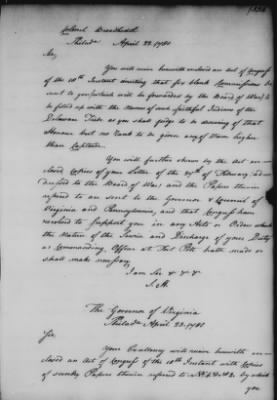 Colonel Broadhead
Philada April 22. 1780
Sir,
You will receive herewith enclosed an Act of Congress
of the 10th Instant directing that six blank Commissions be
sent to you (which will be forwarded by the Board of War) to
be filled up with the Names of such faithful Indians of the
Delaware Tribe as you shall judge to be deserving of that
Honour but no Rank to be given any of them higher
than Captain.
You will further observe by the Act en-
closed Copies of your Letter of the of February ad-
dressed to the Board of War, and the Papers therein
referred to are sent to the Governor & Council of
Virginia and Pennsylvania, and that Congress have
resolved to support you in any Acts or Orders which
the Nature of the Service and Discharge of your Duty
as Commanding Officer at Fort Pitt hath made or
shall make necessary
I am Sir & & &
S. H.
The Governor of Virginia
Philada April 22. 1780
Sir,
Your Excellency will receive herewith en-
closed an Act of Congress of the 10th Instant with Copies
of sundry Papers therein referred to No 1 & No 2. by which
you